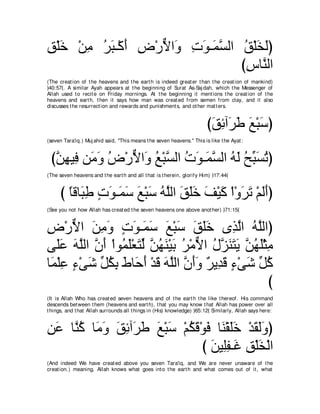 (لَخَلْقُ السَّمَـوَتِ وَالاٌّرْضِ أَكْـبَرُ مِنْ خَلْقِ
النَّاسِ)
(The creation of the heavens and the earth is indeed greater than the creation of mankind)
﴿40:57﴾. A similar Ayah appears at the beginning of Surat As-Sajdah, which the Messenger of
Allah used to recite on Friday mornings. At the beginning it mentions the creation of the
heavens and earth, then it says how man was created from semen from clay, and it also
discusses the resurrection and rewards and punishments, and other matters.
(سَبْعَ طَرَآئِقَ)
(seven Tara'iq.) Mujahid said, "This means the seven heavens." This is like the Ayat:
(تُسَبِّحُ لَهُ السَّمَـوَتُ السَّبْعُ وَالاٌّرْضُ وَمَن فِيهِنَّ)
(The seven heavens and the earth and all that is therein, glorify Him) ﴿17:44﴾
(أَلَمْ تَرَوْاْ كَيْفَ خَلَقَ اللَّهُ سَبْعَ سَمَـوَتٍ طِبَاقاً )
(See you not how Allah has created the seven heavens one above another) ﴿71:15﴾
(اللَّهُ الَّذِى خَلَقَ سَبْعَ سَمَـوَتٍ وَمِنَ الاٌّرْضِ
مِثْلَهُنَّ يَتَنَزَّلُ الاٌّمْرُ بَيْنَهُنَّ لِّتَعْلَمُواْ أَنَّ اللَّهَ عَلَى
كُلِّ شَىْءٍ قَدِيرٌ وَأَنَّ اللَّهَ قَدْ أَحَاطَ بِكُلِّ شَىْءٍ عِلْمَا
)
(It is Allah Who has created seven heavens and of the earth the like thereof. His command
descends between them (heavens and earth), that you may know that Allah has power over all
things, and that Allah surrounds all things in (His) knowledge) ﴿65:12﴾ Similarly, Allah says here:
(وَلَقَدْ خَلَقْنَا فَوْقَكُمْ سَبْعَ طَرَآئِقَ وَمَا كُنَّا عَنِ
الْخَلْقِ غَـفِلِينَ )
(And indeed We have created above you seven Tara'iq, and We are never unaware of the
creation.) meaning, Allah knows what goes into the earth and what comes out of it, what